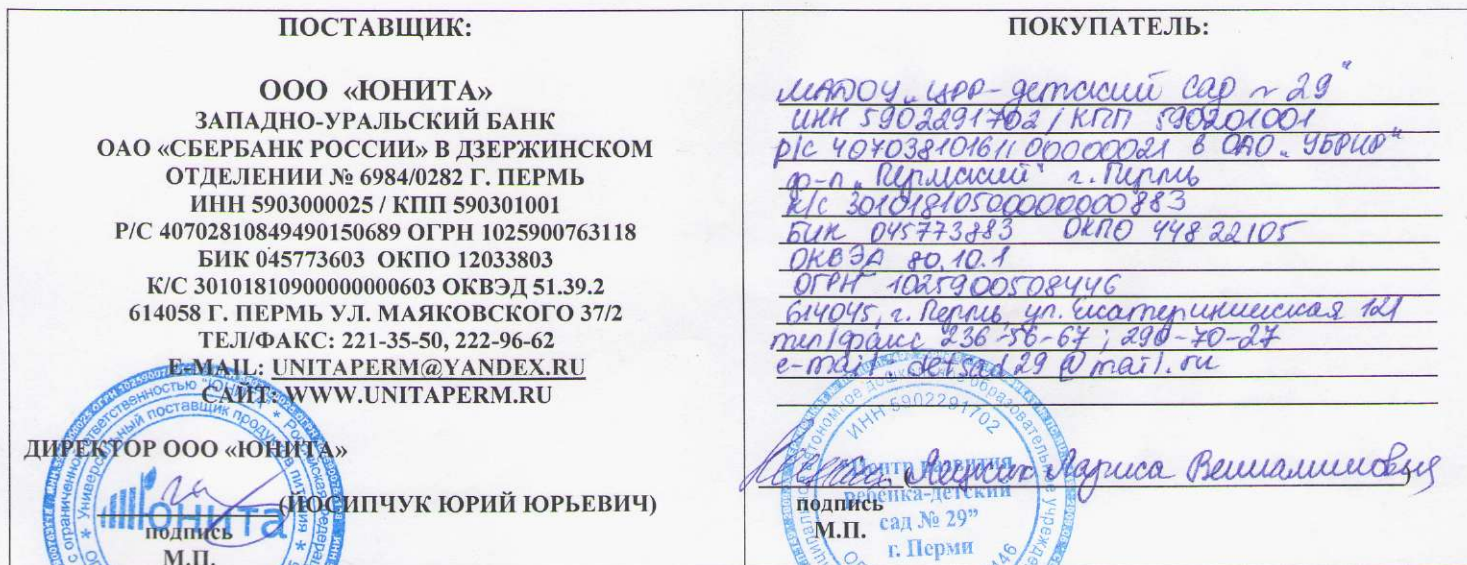 ПОСТАВЩИК:
ООО «ЮНИТА»
ЗАПАДНО-УРАЛЬСКИЙ БАНК
ОАО «СБЕРБАНК РОССИИ» В ДЗЕРЖИНСКОМ
ОТДЕЛЕНИИ № 6984/0282 Г. ПЕРМЬ
ИНН 5903000025 / КПП 590301001
Р/С 40702810849490150689 ОГРН 1025900763118
БИК 045773603 ОКПО 12033803
К/С 30101810900000000603 ОКВЭД 51.39.2
614058 Г. ПЕРМЬ УЛ. МАЯКОВСКОГО 37/2
ТЕЛ/ФАКС: 221-35-50, 222-96-62
E-MAIL: UNITAPERM@YANDEX.RU
САЙТ: WWW.UNITAPERM.RU
ДИРЕКТОР ООО «ЮНИТА»
(ЙОСИПЧУК ЮРИЙ ЮРЬЕВИЧ)
подпись
М.П.
Универсальный поставщик продуктов питания
Юнита
ПОКУПАТЕЛЬ:
МАДОУ „ЦРР-детский сад № 29"
ИНН 5902291702 / КПП 590201001
р/с 40703810161100000021 в ОАО „УБРИР"
ф-л „Пермский" г. Пермь
к/с 30101810500000000883
БИК 045773883 ОКПО 44822105
ОКВЭД 80.10.1
ОГРН 1025900508446
614045, г. Пермь, ул. Екатерининская 121
тел/факс 236-56-67; 290-70-27
e-mail: detsad29@mail.ru
(Лариса Вениаминовна)
подпись
М.П.
ИНН 5902291702
Центр развития
ребенка-детский
сад № 29”
г. Перми